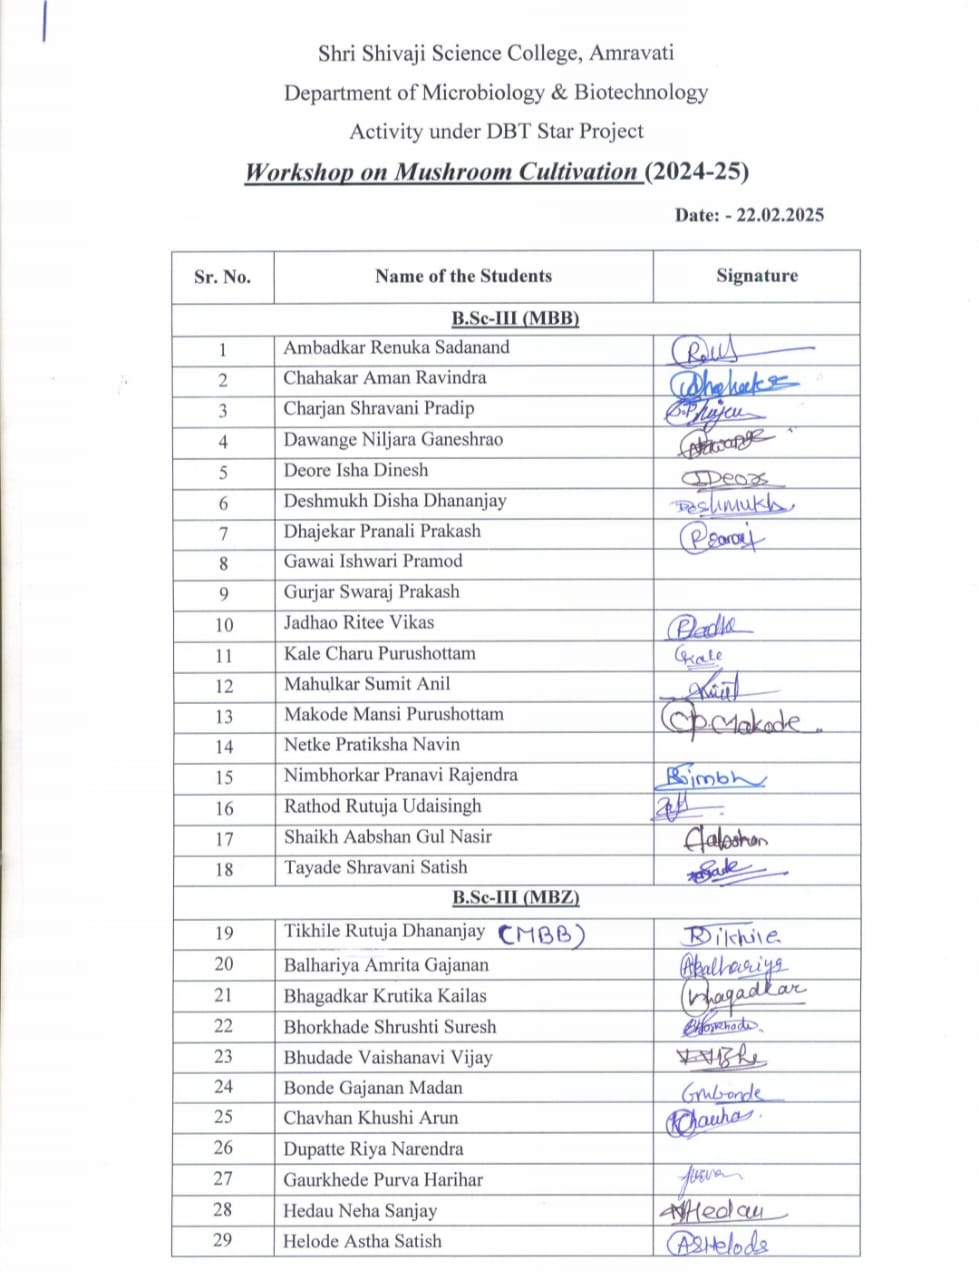 Shri Shivaji Science College, Amravati
Department of Microbiology & Biotechnology
Activity under DBT Star Project
Workshop on Mushroom Cultivation (2024-25)
Date: - 22.02.2025
Sr. No. Name of the Students Signature
B.Sc-III (MBB)
1 Ambadkar Renuka Sadanand
2 Chahakar Aman Ravindra
3 Charjan Shravani Pradip
4 Dawange Niljara Ganeshrao
5 Deore Isha Dinesh
6 Deshmukh Disha Dhananjay Deshmukh
7 Dhajekar Pranali Prakash
8 Gawai Ishwari Pramod
9 Gurjar Swaraj Prakash
10 Jadhao Ritee Vikas
11 Kale Charu Purushottam Kale
12 Mahulkar Sumit Anil
13 Makode Mansi Purushottam Makode
14 Netke Pratiksha Navin
15 Nimbhorkar Pranavi Rajendra
16 Rathod Rutuja Udaisingh
17 Shaikh Aabshan Gul Nasir Aabshan
18 Tayade Shravani Satish
B.Sc-III (MBZ)
19 Tikhile Rutuja Dhananjay (MBB) Rtikhile
20 Balhariya Amrita Gajanan Abalhariya
21 Bhagadkar Krutika Kailas Bhagadkar
22 Bhorkhade Shrushti Suresh Bhorkhade
23 Bhudade Vaishanavi Vijay
24 Bonde Gajanan Madan Gmbonde
25 Chavhan Khushi Arun
26 Dupatte Riya Narendra
27 Gaurkhede Purva Harihar
28 Hedau Neha Sanjay Hedau
29 Helode Astha Satish ASHelode